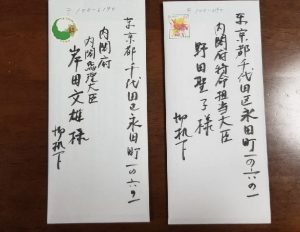 東京都千代田区永田町一の六の一
内閣府特命担当大臣
野田聖子様
御机下
東京都千代田区永田町一の六の一
内閣府
内閣総理大臣
岸田文雄様
御机下